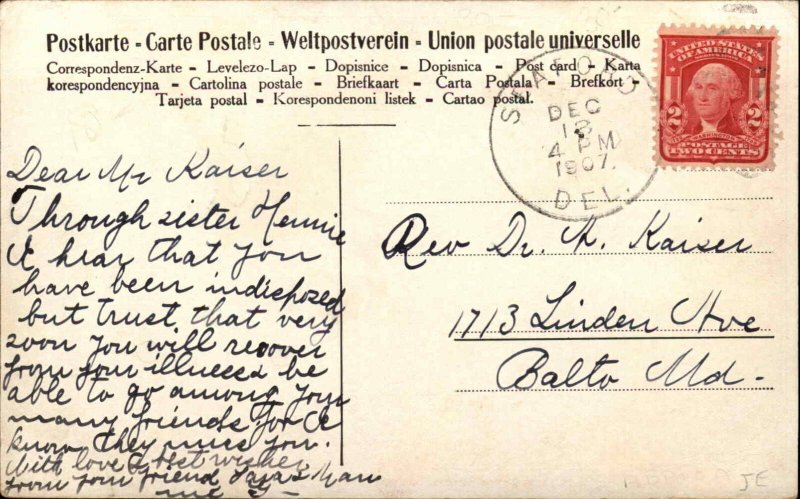 Postkarte - Carte Postale - Weltpostverein - Union postale universelle
Correspondenz-Karte - Levelezo-Lap - Dopisnice - Dopisnica - Post card - Karta
korespondencyjna - Cartolina postale - Briefkaart - Carta Postala - Brefkort -
Tarjeta postal - Korespondenoni listek - Cartao postal.
SEAFORD
DEC
18
4 PM
1907
DEL.
UNITED STATES
OF AMERICA
2 2
WASHINGTON
POSTAGE
TWO CENTS
Dear Mr Kaiser
Through sister Hennie
I hear that you
have been indisposed
but trust that very
soon you will recover
from your illness & be
able to go among your
many friends for I
know they miss you.
With love & best wishes
from your friend
Rev Dr. A. Kaiser
1713 Linden Ave
Balto Md -
JE